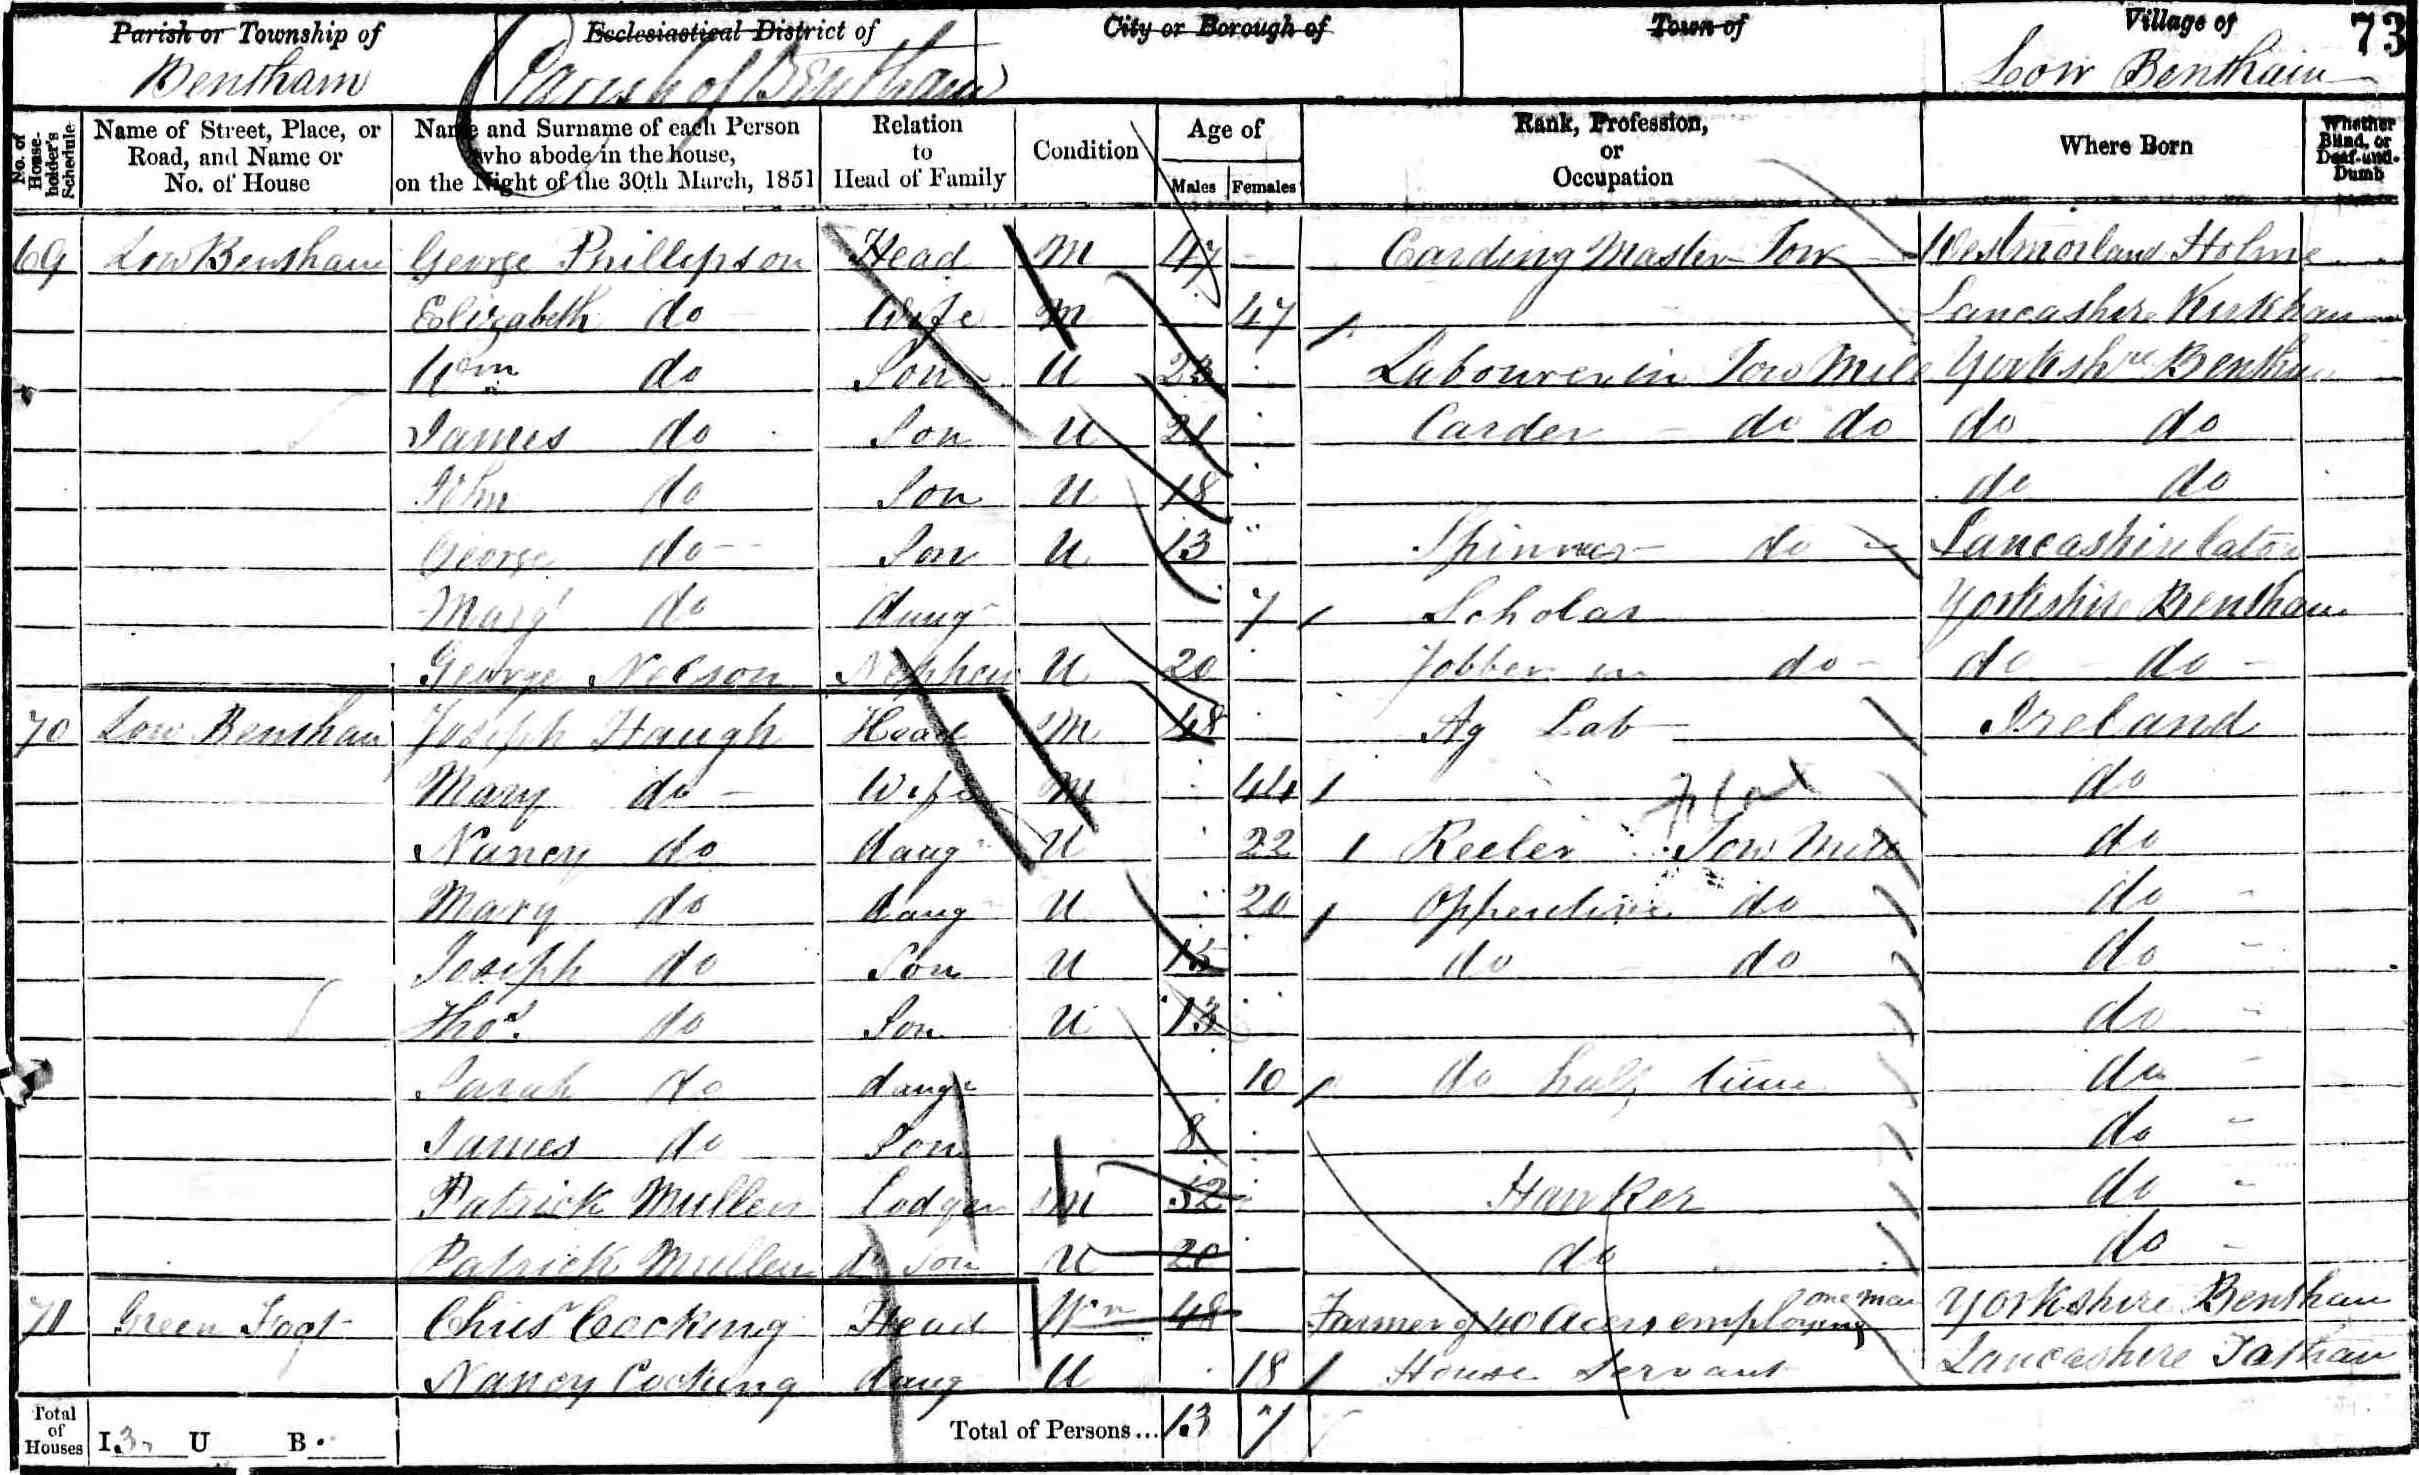 Parish or Township of Ecclesiastical District of City or Borough of Town of Village of 73
Bentham Parish of Bentham Low Bentham
No. of House-holder's Schedule Name of Street, Place, or Road, and Name or No. of House Name and Surname of each Person who abode in the house, on the Night of the 30th March, 1851 Relation to Head of Family Condition Age of Males Females Rank, Profession, or Occupation Where Born Whether Blind, or Deaf-and-Dumb
69 Low Bentham George Phillipson Head M 47 Carding Master Tow Westmorland Holme
Elizabeth do Wife M 47 Lancashire Kirkham
Wm do Son U 23 Labourer in Tow Mill Yorkshire Bentham
James do Son U 21 Carder do do do do
John do Son U 18 do do
George do Son U 13 Spinner do Lancashire Caton
Margt do daugr 7 Scholar Yorkshire Bentham
George Nelson Nephew U 20 Jobber in do do do
70 Low Bentham Joseph Haugh Head M 48 Ag Lab Ireland
Mary do Wife M 44 do
Flax
Nancy do daugr U 22 Reeler Tow Mill do
Mary do daug U 20 do do
Joseph do Son U 15 do do do
Thos. do Son U 13 do
Sarah do daugr 10 do half time do
James do Son 8 do
Patrick Mullen Lodger M 52 Hawker do
Patrick Mullen do Son U 20 do do
71 Green Foot Chisr Cocking Head Wr 48 Farmer of 40 Acers employing one man Yorkshire Bentham
Nancy Cocking daug U 18 House Servant Lancashire Tatham
Total of Houses I 3 U B Total of Persons... 13 7